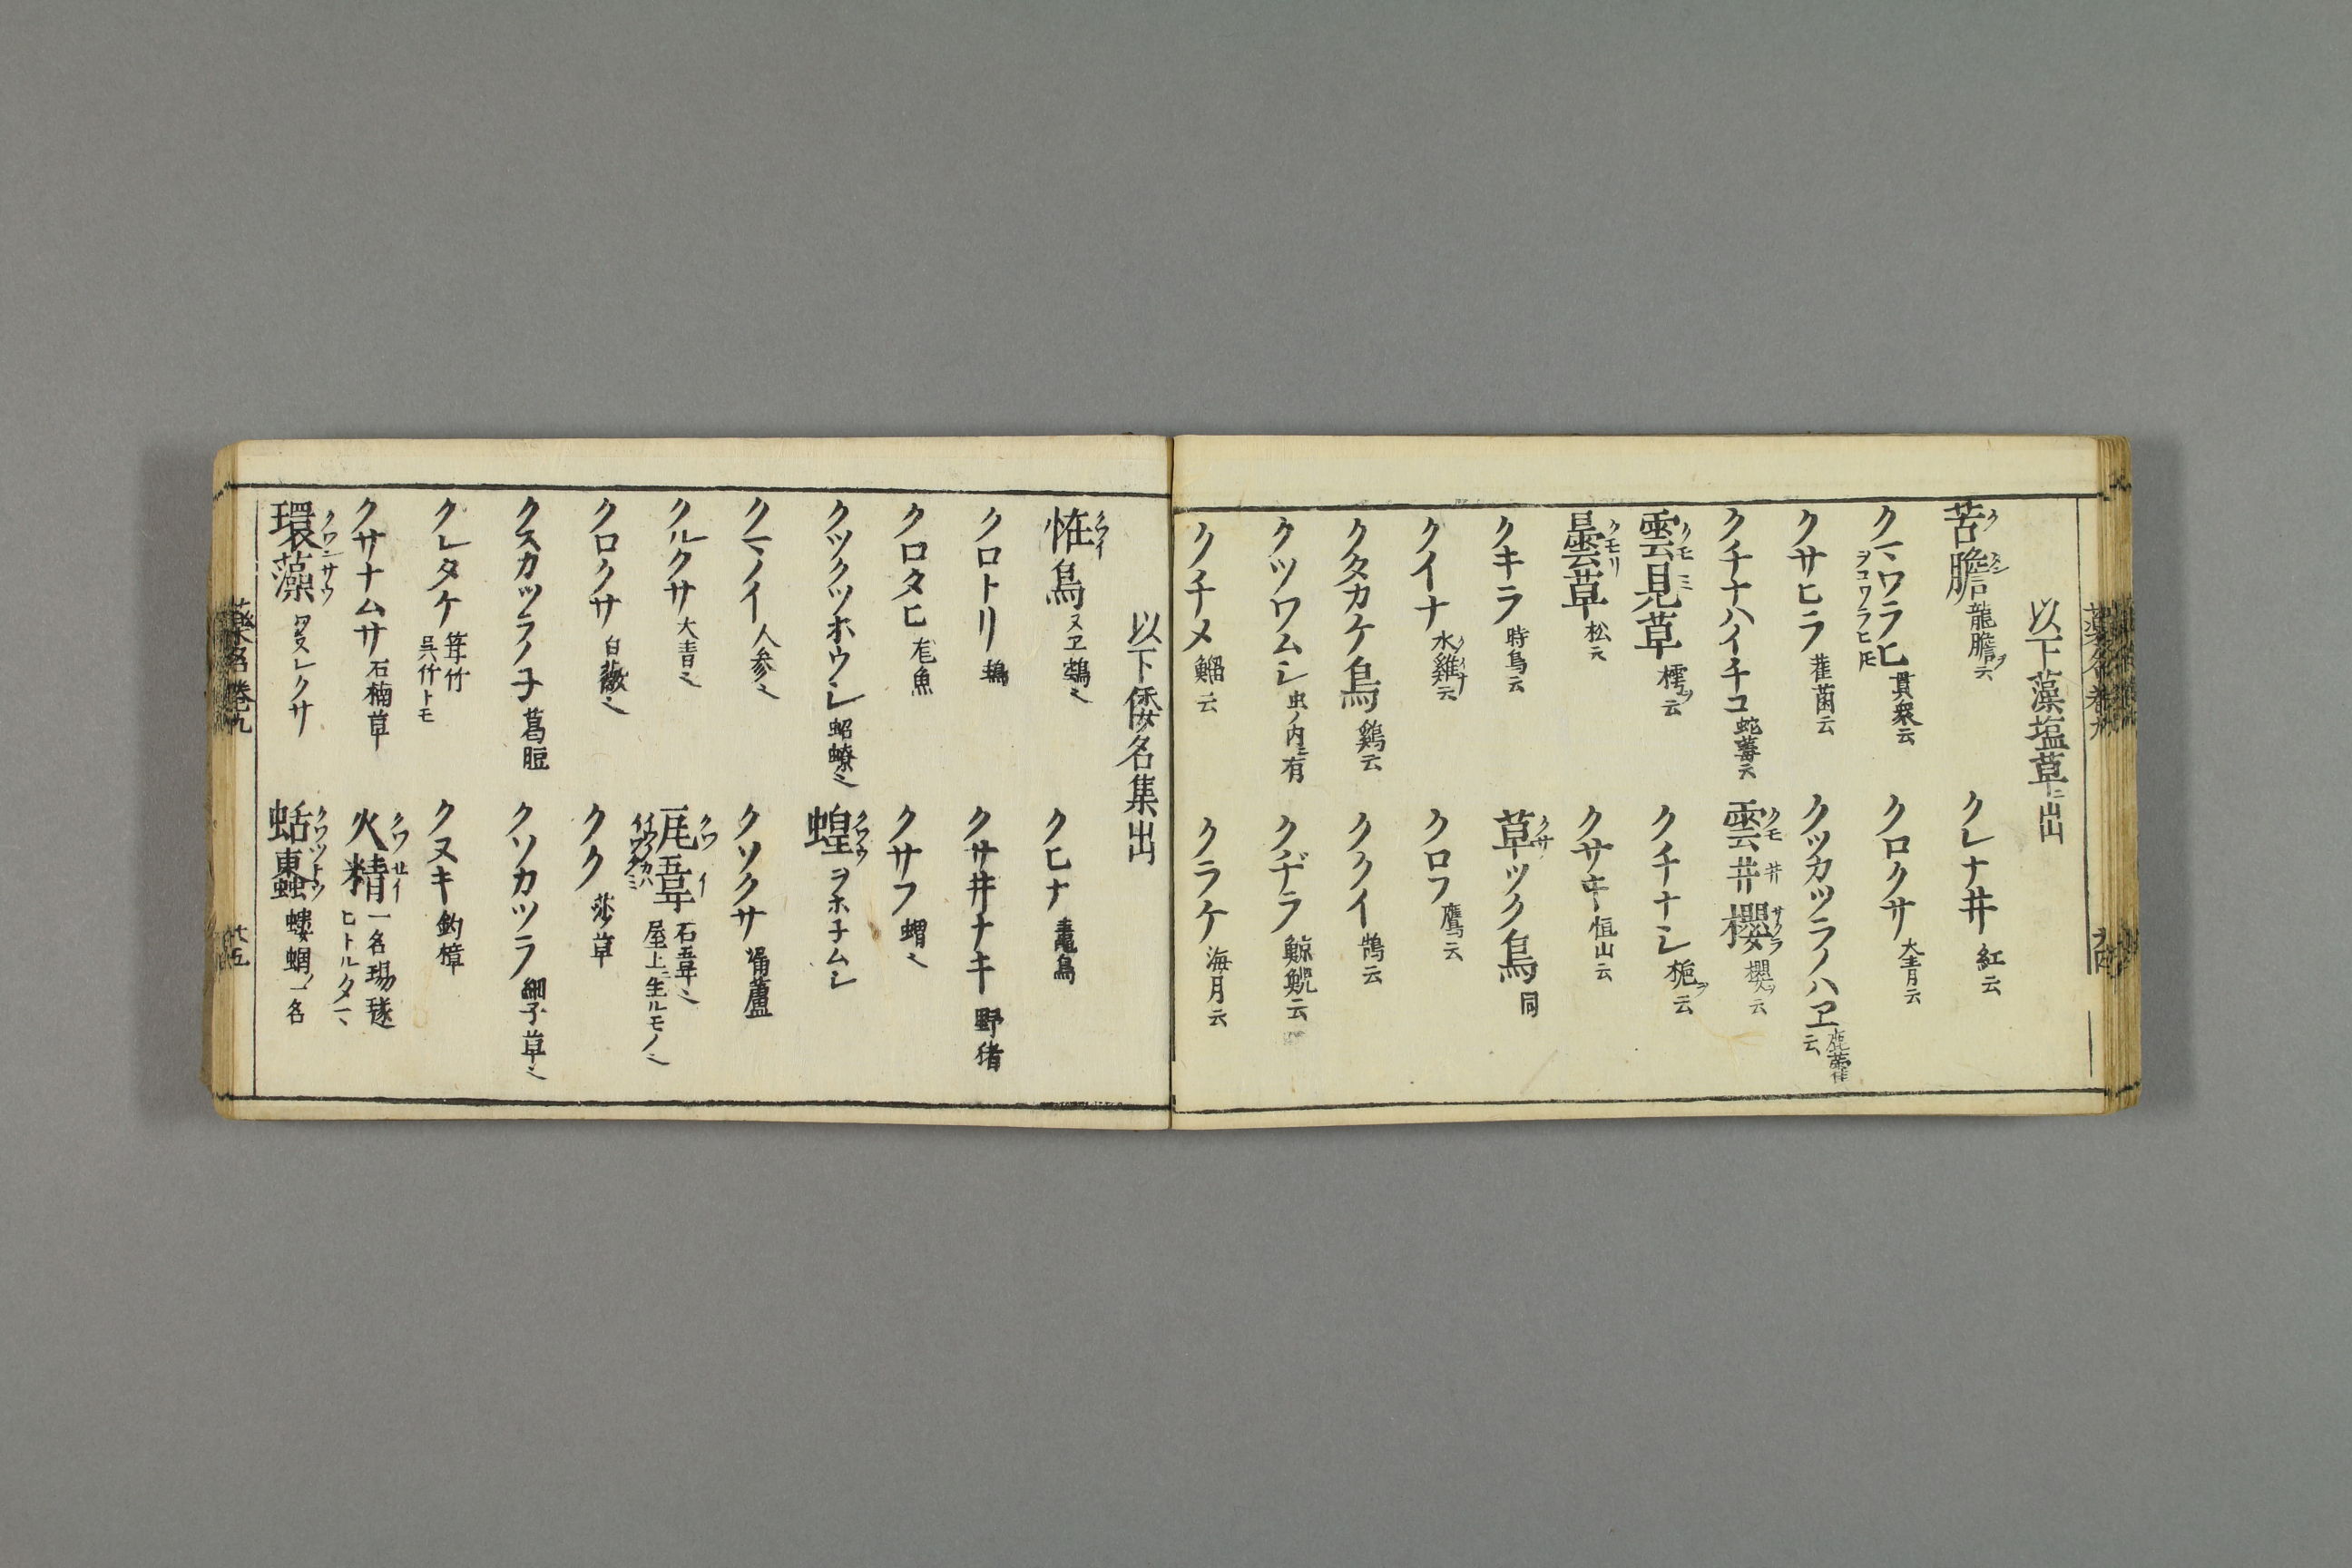 以下藻塩草ニ出
苦膽 龍膽ヲ云
クレナ井 紅云
クマワラヒ 貫衆云 ヲコワラヒ𪜈
クロクサ 大青云
クサヒラ 萑菌云
クツカツラノハヱ 鹿藿云
クチナハイチコ 蛇莓云
雲井櫻 櫻ヲ云
雲見草 樗ヲ云
クチナシ 梔ヲ云
曇草 松云
クサキ 恒山云
クキラ 時鳥云
草ツク鳥 同
クイナ 水雞云
クロフ 鷹云
クタカケ鳥 鷄云
ククイ 鵠云
クツワムシ 虫ノ内ニ有
クヂラ 鯨鯢云
クチメ 鯔云
クラケ 海月云
以下倭名集出
恠鳥 ヌヱ鵼也
クヒナ 鼃鳥
クロトリ
クサ井ナキ 野猪
クロタヒ 尨魚
クサフ 蝟也
クツクツホウシ 蛁蟟也
蝗 ヲホ子ムシ
クマノイ 人参也
クソクサ 漏蘆
クルクサ 大青也
㡯葦 石葦也 屋上ニ生ルモノ也
クロクサ 白薇也
クク 莎草
クスカツラノ子 葛脰
クソカツラ 細子草也
クレタケ 筓竹 呉竹トモ
クヌキ 釣樟
クサナムサ 石楠草
火精 一名瑒璲 ヒトルタマ
環藻 ワスレクサ
蛞東蝕 螻蟈ノ一名
薬名 巻九 廿五